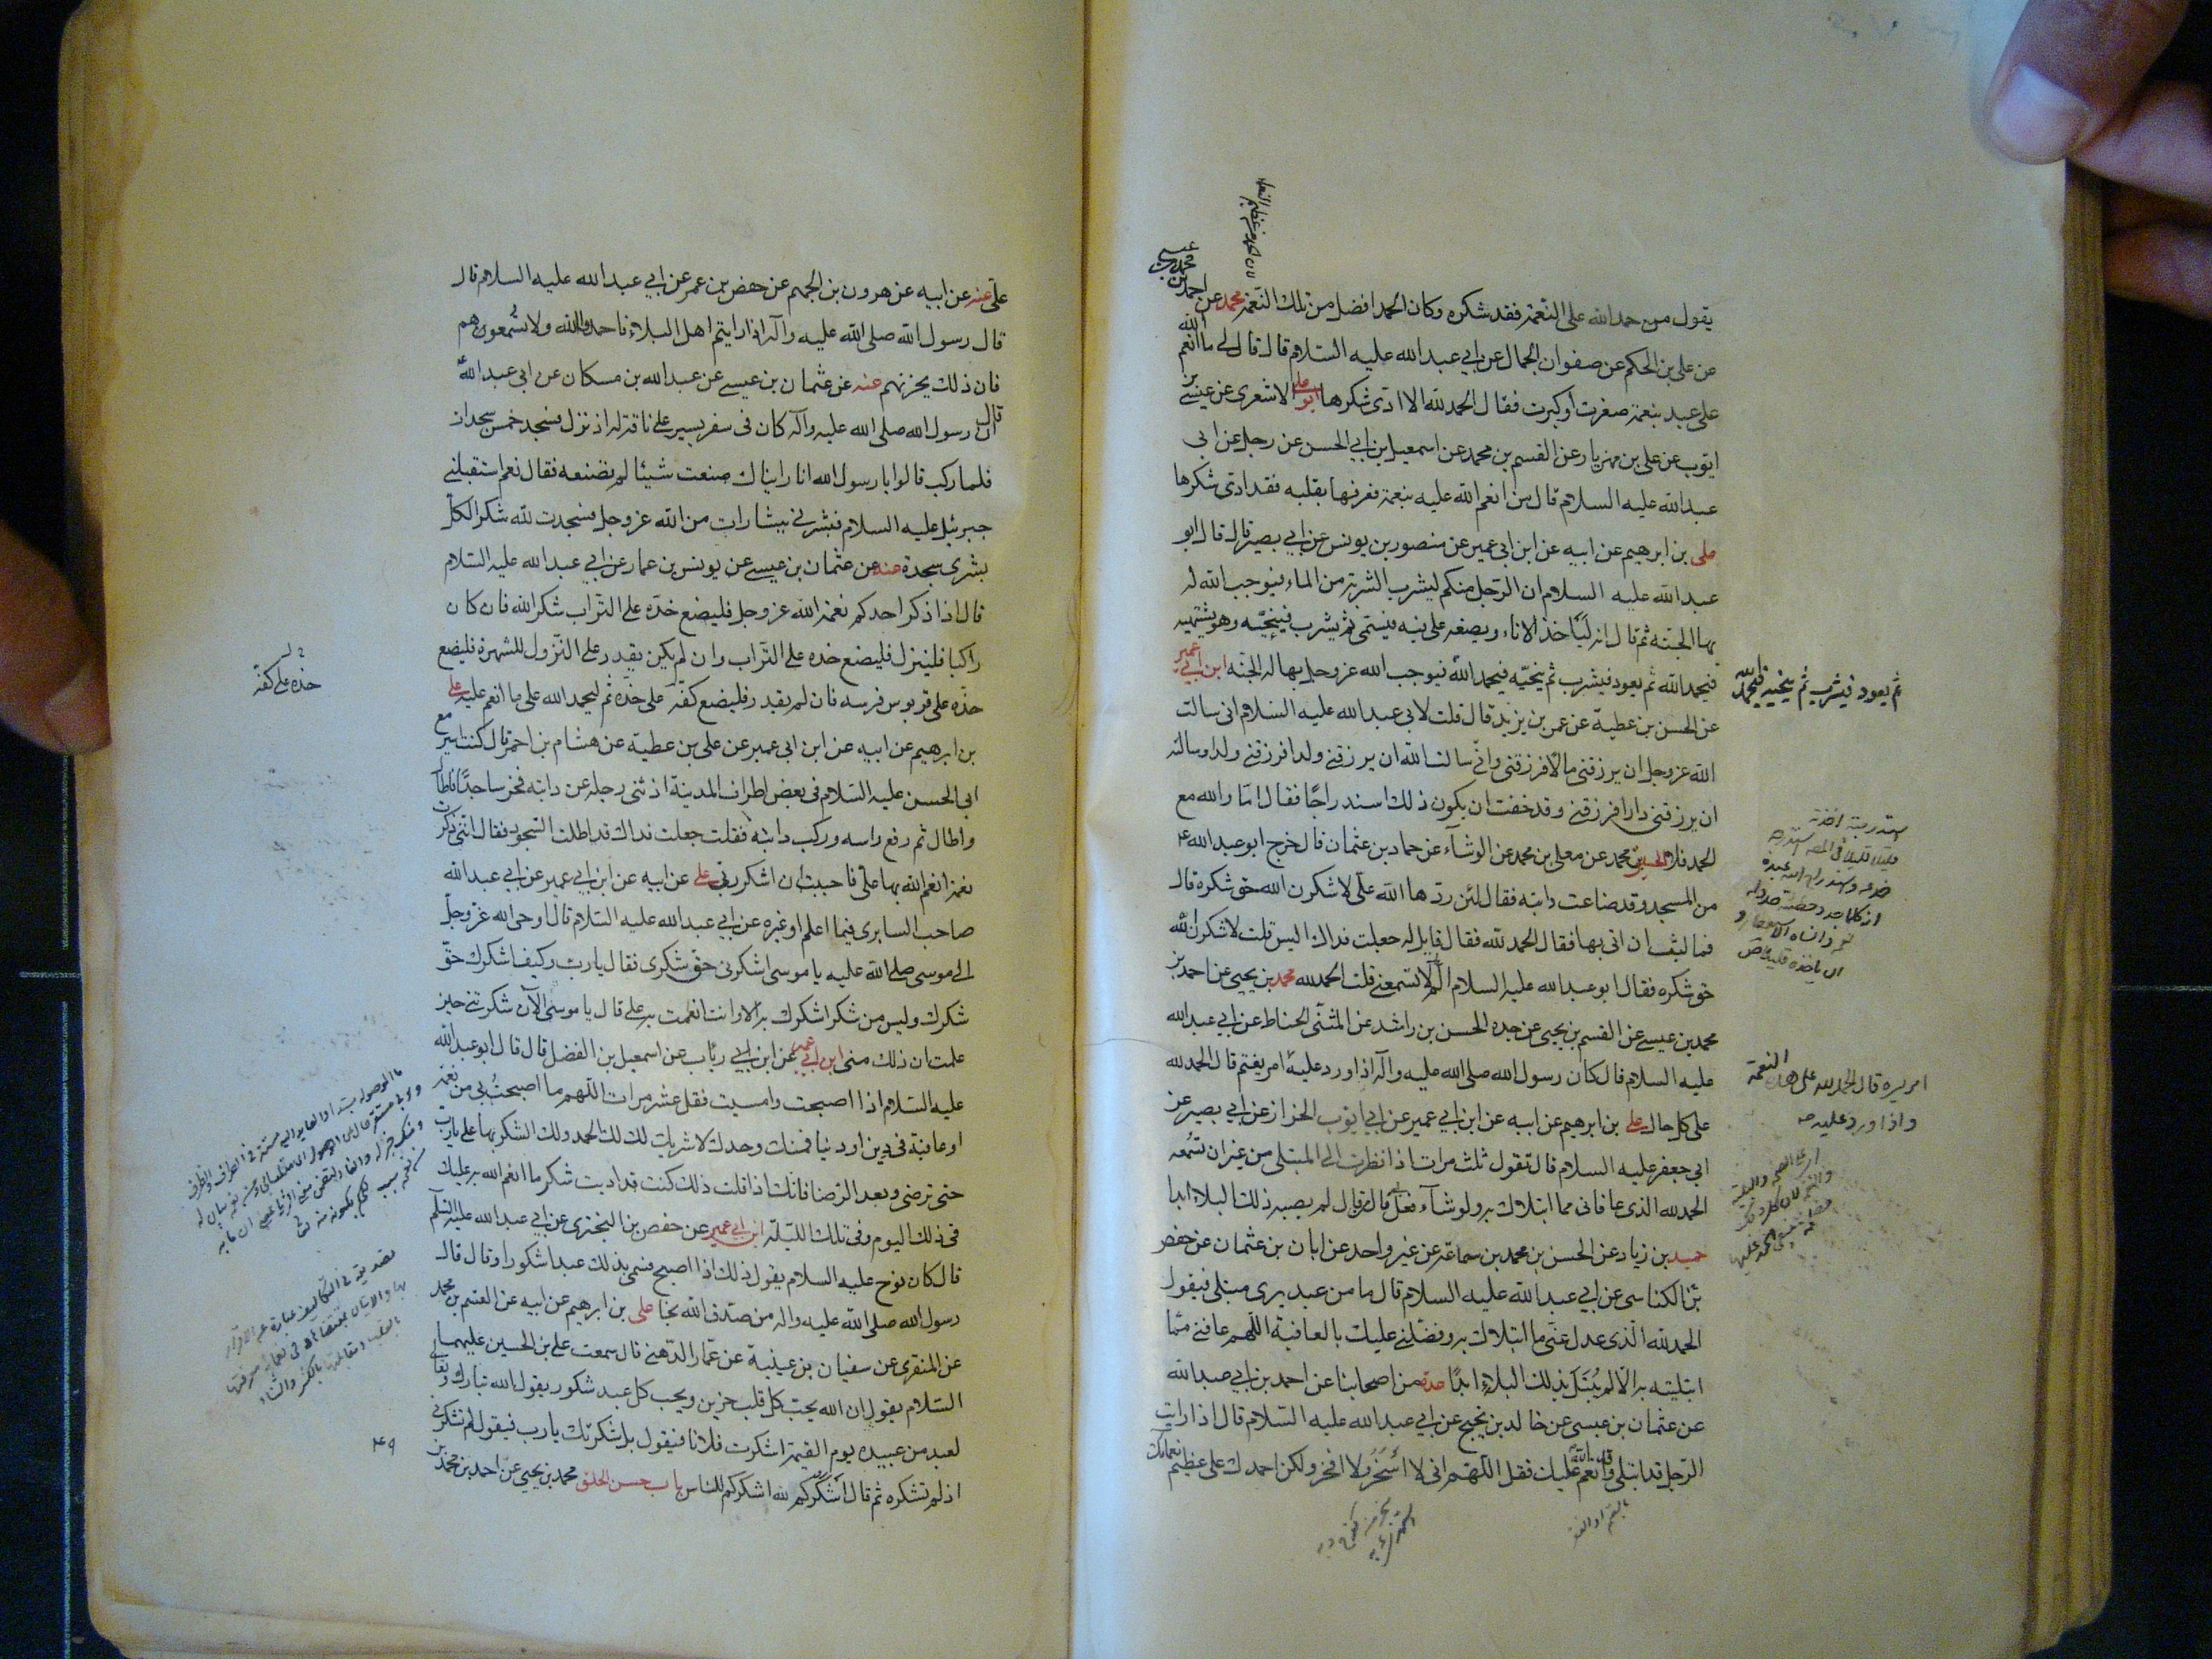 يقول من حمد الله على النعمة فقد شكره وكان الحمد افضل من تلك النعمة محمد عن احمد بن محمد بن عيسى
عن على بن الحكم عن صفوان الجمال عن ابي عبد الله عليه السلام قال قال لي ما انعم الله
على عبد بنعمة صغرت او كبرت فقال الحمد لله الا ادى شكرها ابو على الاشعرى عن عيسى بن
ايوب عن على بن مهزيار عن القسم بن محمد عن اسمعيل بن ابي الحسن عن رجل عن ابى
عبد الله عليه السلام قال من انعم الله عليه بنعمة فعرفها بقلبه فقد ادى شكرها
على بن ابرهيم عن ابيه عن ابن ابى عمير عن منصور بن يونس عن ابي بصير قال قال ابو
عبد الله عليه السلام ان الرجل منكم ليشرب الشربة من الماء فيوجب الله له
بها الجنة ثم قال انه ليأخذ الاناء ويضعه على فيه فيسمى ثم يشرب فينحيه وهو يشتهيه
فيحمد الله ثم يعود فيشرب ثم ينحيه فيحمد الله فيوجب الله عز وجل بها له الجنة ابن ابي عمير
عن الحسن بن عطية عن عمر بن يزيد قال قلت لابي عبد الله عليه السلام انى سالت
الله عز وجل ان يرزقنى مالا فرزقنى وانى سالت الله ان يرزقنى ولدا فرزقنى ولدا وسالته
ان يرزقنى دارا فرزقنى وقد خفت ان يكون ذلك استدراجا فقال اما والله مع
الحمد فلا الحسين بن محمد عن معلى بن محمد عن الوشاء عن حماد بن عثمان قال خرج ابو عبد الله ع
من المسجد وقد ضاعت دابته فقال لئن ردها الله على لاشكرن الله حق شكره قال
فما لبث ان اتى بها فقال الحمد لله فقال قايل له جعلت فداك اليس قلت لاشكرن الله
حق شكره فقال ابو عبد الله عليه السلام الم تسمعنى قلت الحمد لله محمد بن يحيى عن احمد بن
محمد بن عيسى عن القسم بن يحيى عن جده الحسن بن راشد عن المثنى الحناط عن ابي عبد الله
عليه السلام قال كان رسول الله صلى الله عليه وآله اذا ورد عليه امر يغتم قال الحمد لله
على كل حال على بن ابرهيم عن ابيه عن ابن ابي عمير عن ابي ايوب الخزاز عن ابي بصير عن
ابي جعفر عليه السلام قال تقول ثلث مرات اذا نظرت الى المبتلى من غير ان تسمعه
الحمد لله الذى عافانى مما ابتلاك به ولو شاء فعل قال من قال لم يصبه ذلك البلاء ابدا
حميد بن زياد عن الحسن بن محمد بن سماعة عن غير واحد عن ابان بن عثمان عن حفص
بن الكناسى عن ابي عبد الله عليه السلام قال ما من عبد يرى مبتلى فيقول
الحمد لله الذى عدل عنى ما ابتلاك به وفضلنى عليك بالعافية اللهم عافنى مما
ابتليته به الا لم يبتل بذلك البلاء ابدا عدة من اصحابنا عن احمد بن ابي عبد الله
عن عثمان بن عيسى عن خالد بن نجيح عن ابي عبد الله عليه السلام قال اذا رايت
الرجل قد ابتلى وانعم الله عليك فقل اللهم انى لا اسخر ولا افخر ولكن احمدك على عظيم نعمائك
ثم يعود فيشرب ثم ينحيه فيحمد الله
امر يسره قال الحمد لله على هذه النعمة
واذا ورد عليه
على عنه عن ابيه عن هرون بن الجهم عن حفص بن عمر عن ابي عبد الله عليه السلام قال
قال رسول الله صلى الله عليه وآله اذا رايتم اهل البلاء فاحمدوا الله ولا تسمعوهم
فان ذلك يحزنهم عنه عن عثمان بن عيسى عن عبد الله بن مسكان عن ابى عبد الله ع
قال ان رسول الله صلى الله عليه وآله كان فى سفر يسير على ناقة له اذ نزل فسجد خمس سجدات
فلما ركب قالوا يا رسول الله انا رايناك صنعت شيئا لم تصنعه فقال نعم استقبلنى
جبرئيل عليه السلام فبشرنى ببشارات من الله عز وجل فسجدت لله شكرا لكل
بشرى سجدة عنه عن عثمان بن عيسى عن يونس بن عمار عن ابي عبد الله عليه السلام
قال اذا ذكر احدكم نعمة الله عز وجل فليضع خده على التراب شكرا لله فان كان
راكبا فلينزل فليضع خده على التراب وان لم يكن يقدر على النزول للشهرة فليضع
خده على قربوس فرسه فان لم يقدر فليضع كفه على خده ثم ليحمد الله على ما انعم عليه على
بن ابرهيم عن ابيه عن ابن ابى عمير عن على بن عطية عن هشام بن احمر قال كنت اسير مع
ابى الحسن عليه السلام فى بعض اطراف المدينة اذ ثنى رجله عن دابته فخر ساجدا فاطال
واطال ثم رفع راسه وركب دابته فقلت جعلت فداك قد اطلت السجود فقال اننى ذكرت
نعمة انعم الله بها على فاحببت ان اشكر ربى على عن ابيه عن ابن ابي عمير عن ابي عبد الله
صاحب السابرى فيما اعلم او غيره عن ابي عبد الله عليه السلام قال اوحى الله عز وجل
الى موسى صلى الله عليه يا موسى اشكرنى حق شكرى فقال يا رب وكيف اشكرك حق
شكرك وليس من شكر اشكرك به الا وانت انعمت به على قال يا موسى الآن شكرتنى حين
علمت ان ذلك منى ابن ابي عمير عن ابن ابي رئاب عن اسمعيل بن الفضل قال قال ابو عبد الله
عليه السلام اذا اصبحت وامسيت فقل عشر مرات اللهم ما اصبحت بى من نعمة
او عافية فى دين او دنيا فمنك وحدك لا شريك لك لك الحمد ولك الشكر بها على يا رب
حتى ترضى وبعد الرضا فانك اذا قلت ذلك كنت قد اديت شكر ما انعم الله به عليك
فى ذلك اليوم وفى تلك الليلة ابن ابي عمير عن حفص بن البخترى عن ابي عبد الله عليه السلم
قال كان نوح عليه السلام يقول ذلك اذا اصبح فسمى بذلك عبدا شكورا وقال قال
رسول الله صلى الله عليه واله من صدق الله نجا على بن ابرهيم عن ابيه عن القسم بن محمد
عن المنقرى عن سفيان بن عيينة عن عمار الدهنى قال سمعت على بن الحسين عليهما
السلام يقول ان الله يحب كل قلب حزين ويحب كل عبد شكور يقول الله تبارك وتعالى
لعبد من عبيده يوم القيمة اشكرت فلانا فيقول بل شكرتك يا رب فيقول لم تشكرنى
اذ لم تشكره ثم قال اشكركم لله اشكركم للناس باب حسن الخلق محمد بن يحيى عن احمد بن محمد بن
خده على كفه